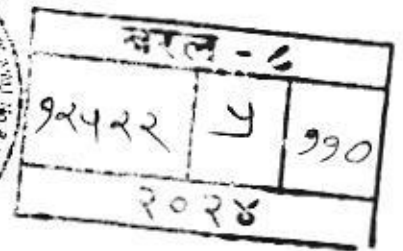 बरल - ८
१२५२२ ५ ११०
२०२४